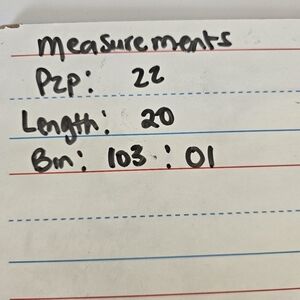 measurements
P2P: 22
Length: 20
Bin: 103 : 01